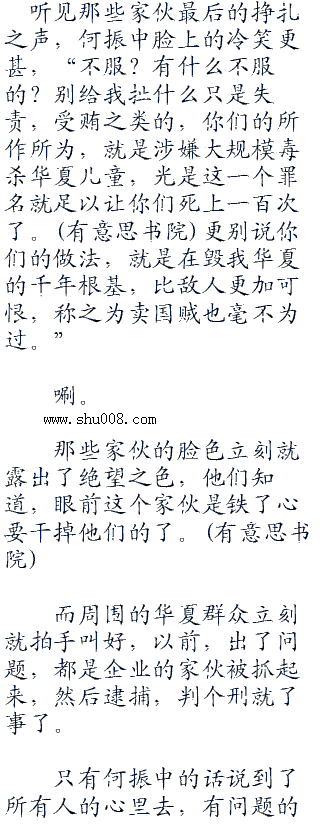 听见那些家伙最后的挣扎
之声，何振中脸上的冷笑更
甚，“不服？有什么不服
的？别给我扯什么只是失
责，受贿之类的，你们的所
作所为，就是涉嫌大规模毒
杀华夏儿童，光是这一个罪
名就足以让你们死上一百次
了。(有意思书院)更别说你
们的做法，就是在毁我华夏
的千年根基，比敌人更加可
恨，称之为卖国贼也毫不为
过。”
唰。
www.shu008.com
那些家伙的脸色立刻就
露出了绝望之色，他们知
道，眼前这个家伙是铁了心
要干掉他们的了。(有意思书
院)
而周围的华夏群众立刻
就拍手叫好，以前，出了问
题，都是企业的家伙被抓起
来，然后逮捕，判个刑就了
事了。
只有何振中的话说到了
所有人的心里去，有问题的